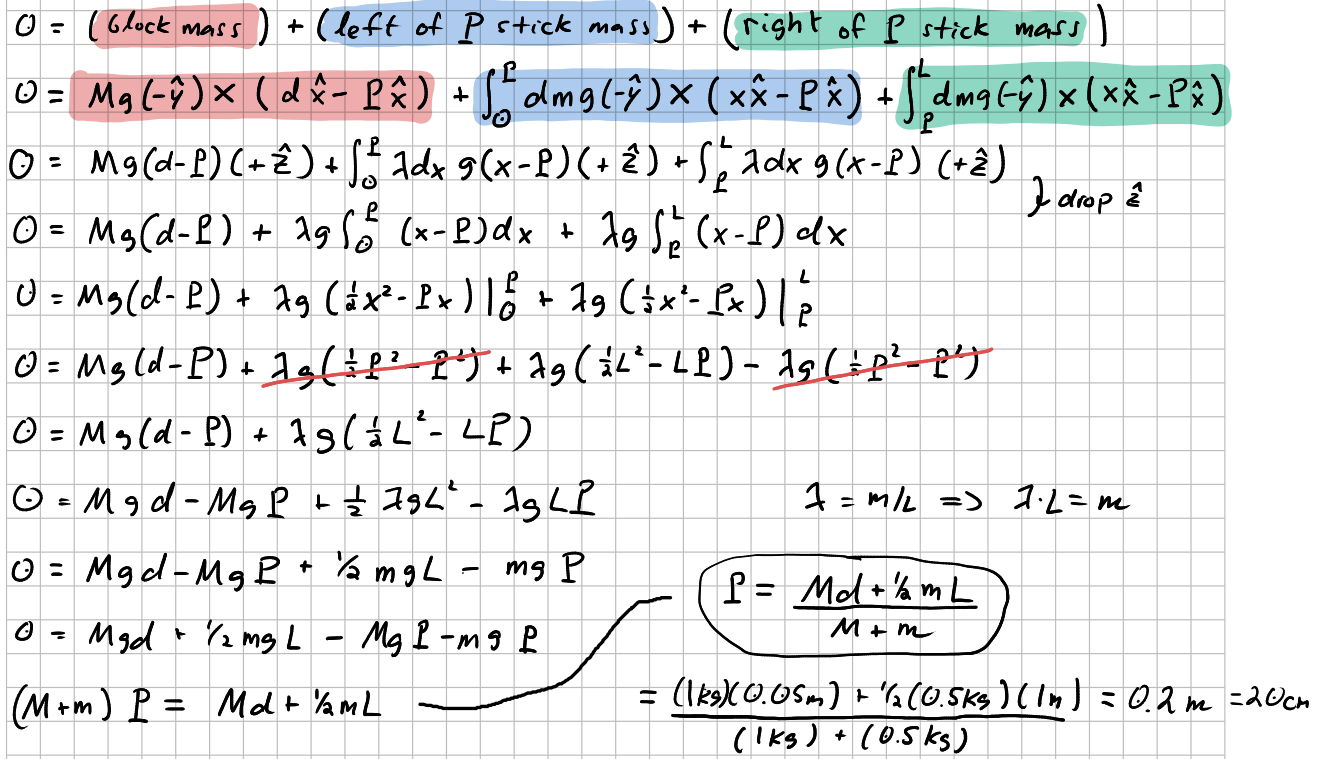 0 = (block mass) + (left of P stick mass) + (right of P stick mass)
0 = Mg(-ŷ) × (d x̂ - P x̂) + ∫₀ᴾ dm g(-ŷ) × (x x̂ - P x̂) + ∫_P^L dm g(-ŷ) × (x x̂ - P x̂)
0 = Mg(d-P)(+ẑ) + ∫₀ᴾ λdx g(x-P)(+ẑ) + ∫_P^L λdx g(x-P) (+ẑ)
drop ẑ
0 = Mg(d-P) + λg ∫₀ᴾ (x-P)dx + λg ∫_P^L (x-P) dx
0 = Mg(d-P) + λg (½x² - Px)|₀ᴾ + λg (½x² - Px)|_P^L
0 = Mg(d-P) + λg(½P² - P²) + λg(½L² - LP) - λg(½P² - P²)
0 = Mg(d-P) + λg(½L² - LP)
0 = Mgd - MgP + ½ λgL² - λgLP λ = m/L => λ·L = m
0 = Mgd - MgP + 1/2 mgL - mgP
P = (Md + 1/2 mL)/(M + m)
0 = Mgd + 1/2 mgL - MgP - mgP
(M+m) P = Md + 1/2 mL
= ((1kg)(0.05m) + 1/2(0.5kg)(1m))/((1kg) + (0.5kg)) = 0.2 m = 20cm